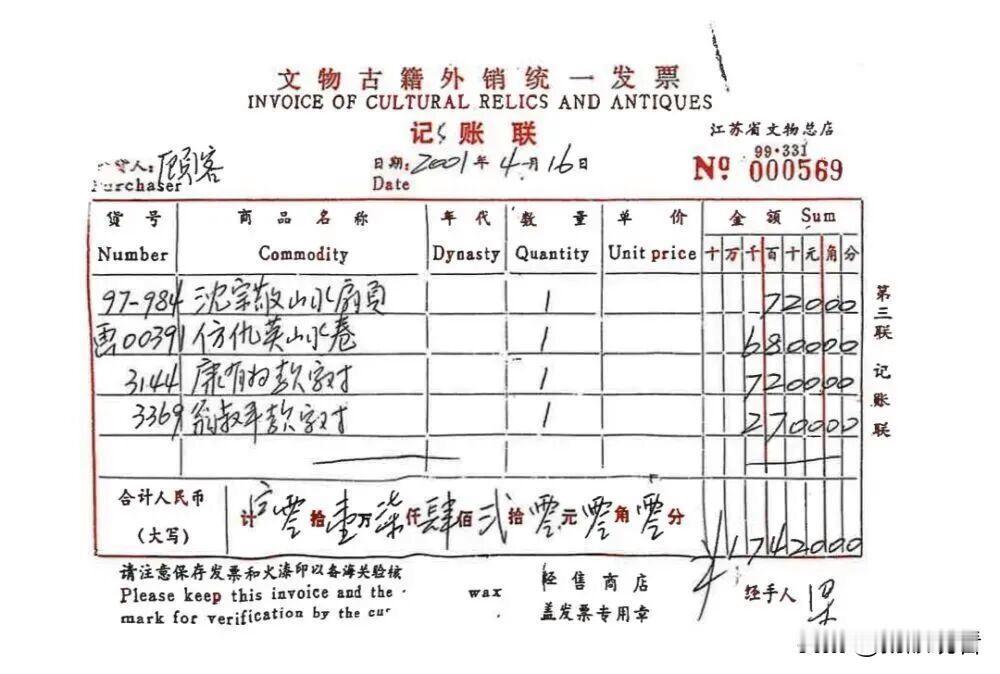 文物古籍外销统一发票
INVOICE OF CULTURAL RELICS AND ANTIQUES
记账联
江苏省文物总店
99·331
货人: 顾客 日期: 2001年4月16日 Nº 000569
Purchaser Date
货号 商品名称 年代 数量 单价 金额 Sum
Number Commodity Dynasty Quantity Unit price 十万千百十元角分
97-984 沈宗敬山水扇页 1 72000
画00391 仿仇英山水卷 1 680000
3144 康有为款字对 1 720000
3369 翁叔平款字对 1 270000
合计人民币 计 零拾壹万柒仟肆佰贰拾零元零角零分
(大写) ¥1742000
第三联 记账联
请注意保存发票和火漆印以备海关验核 经售商店 经手人
Please keep this invoice and the wax
mark for verification by the cu 盖发票专用章